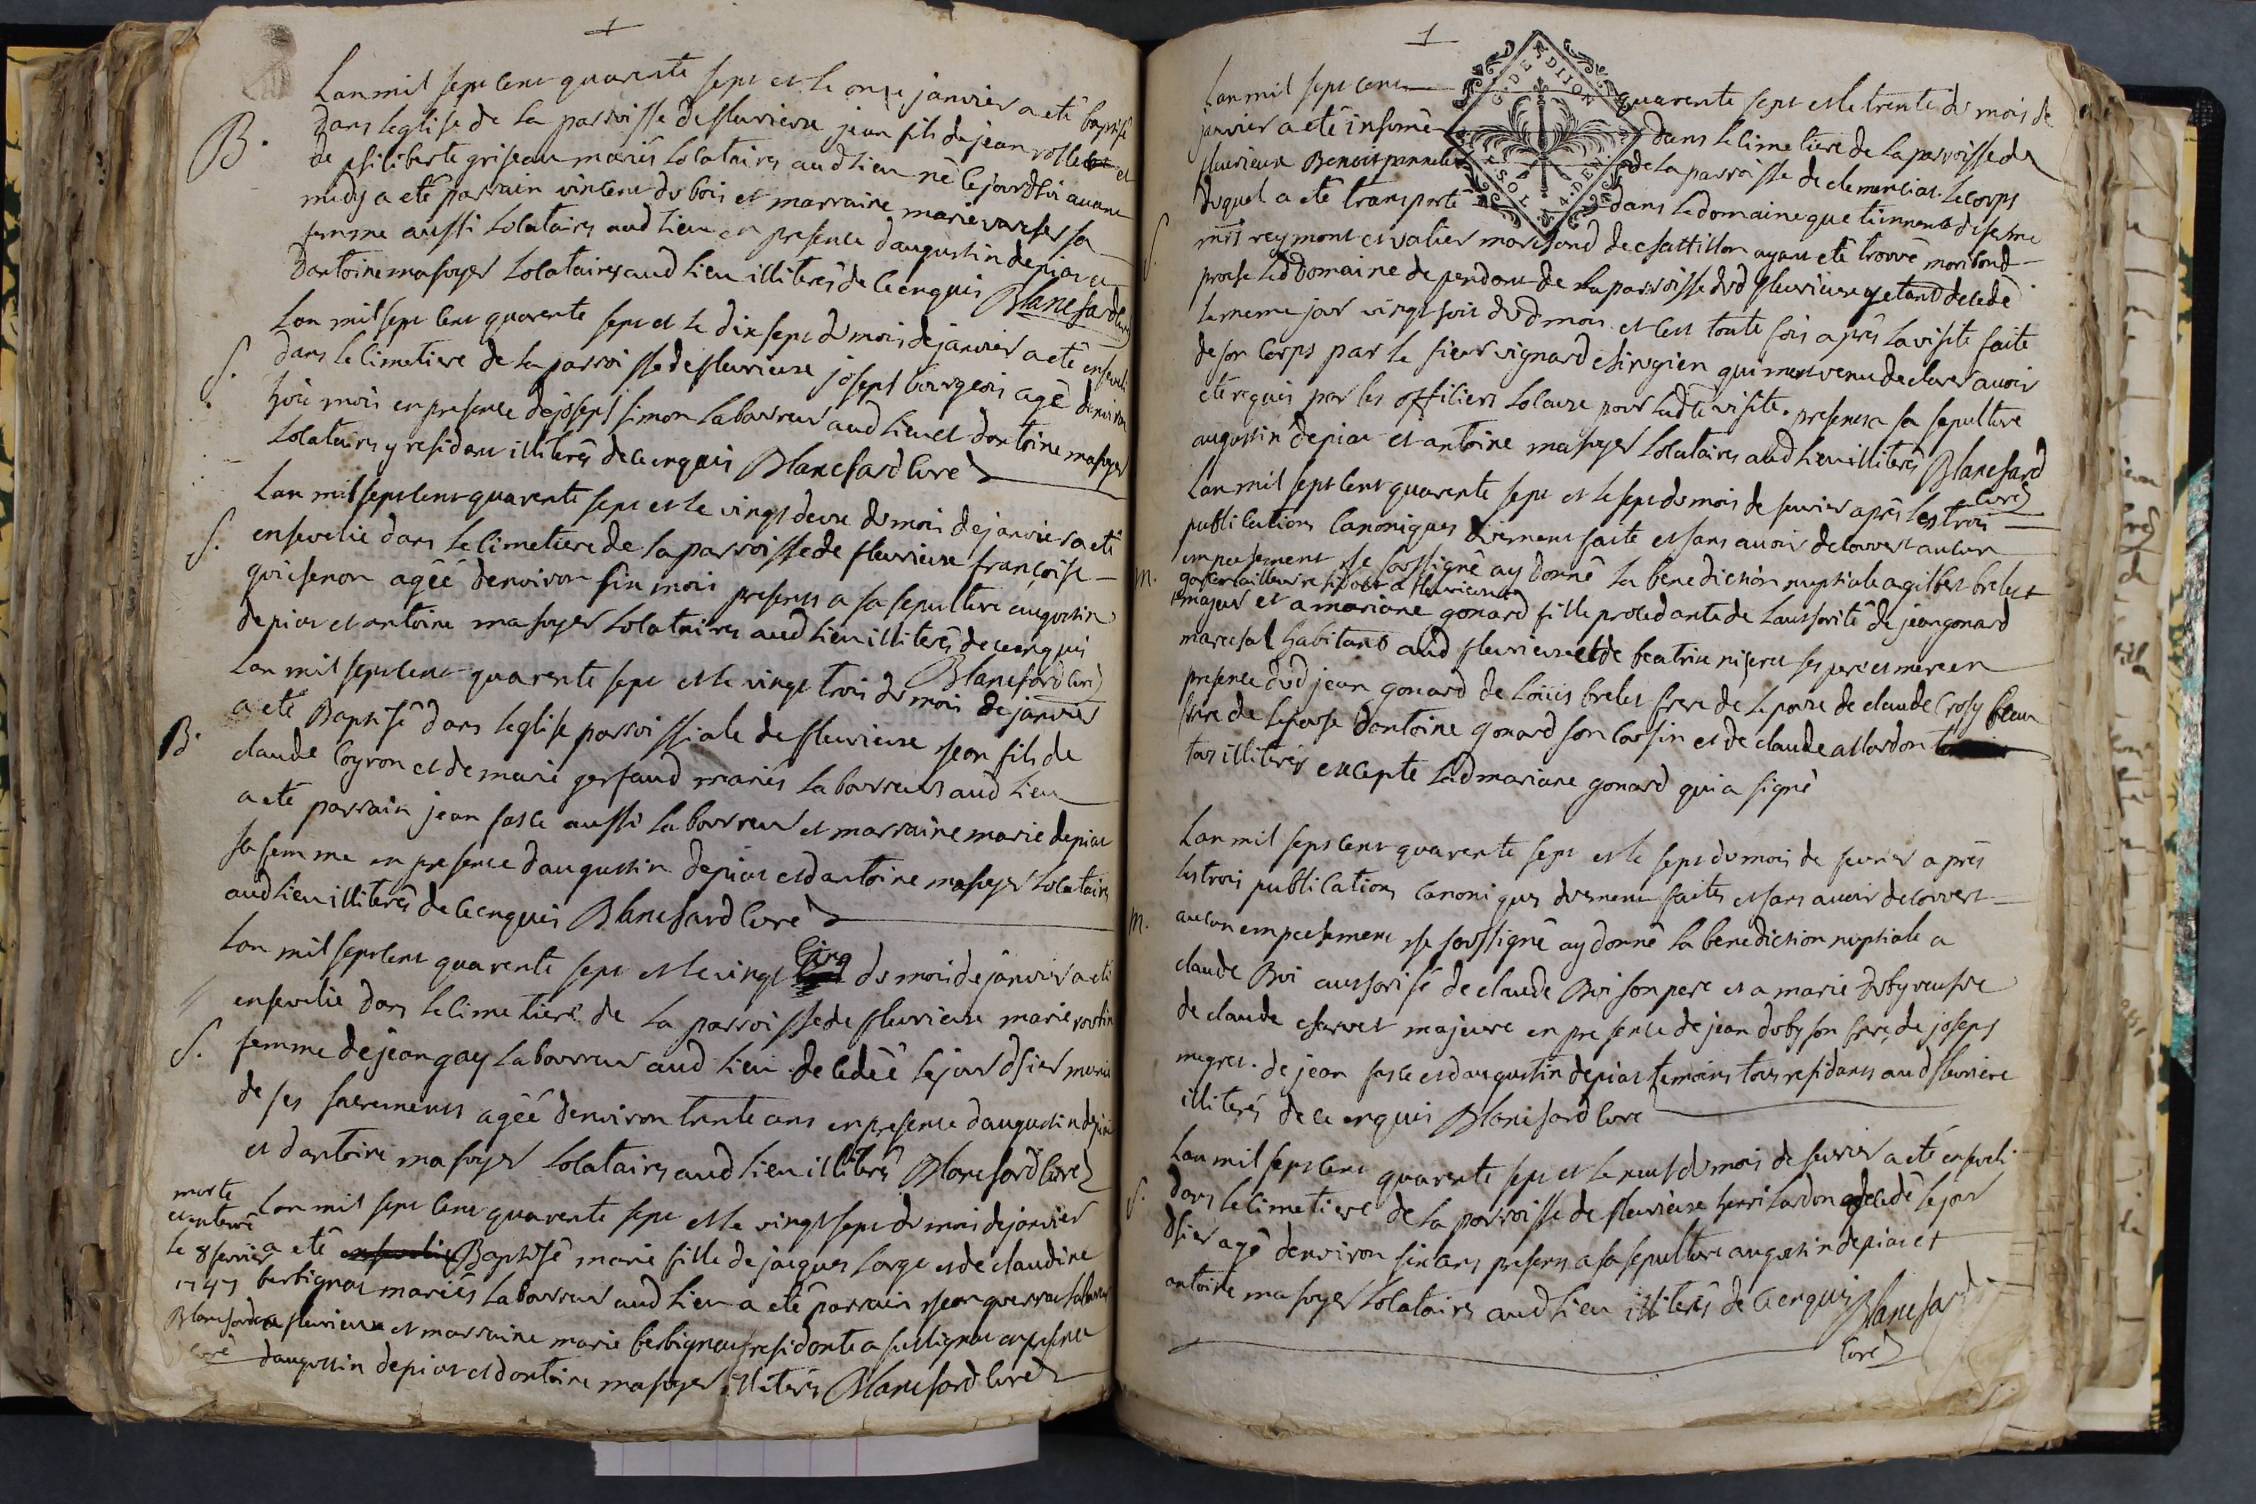 1
Lan mil sept cent quarente sept et le onze janvier a eté baptisé
B. dans leglise de la parroisse de fleurieux jean fils de jean rollet et
de philiberte griseau mariés locataires aud lieu né le jour dhier avant
midy a eté parrain vincent du bois et marraine marie
femme aussi locataires aud lieu en presence daugustin depias et
dantoine masoyer locataires aud lieu illiterés de ce enquis Blanchard curé
Lan mil sept cent quarente sept et le dix sept du mois de janvier a eté enseveli
S. dans le cimetiere de la parroisse de fleurieux joseph bourgeois agé denviron
huit mois en presence de joseph simon laboureur aud lieu et dantoine masoyer
locataires y residant illiterés de ce enquis Blanchard curé
Lan mil sept cent quarente sept et le vingt deux du mois de janvier a eté
S. ensevelie dans le cimetiere de la parroisse de fleurieux françoise
guichenon agée denviron six mois presents a sa sepulture augustin
depias et antoine masoyer locataires aud lieu illiterés de ce enquis
Blanchard curé
Lan mil sept cent quarente sept et le vingt trois du mois de janvier
a eté Baptisé dans leglise parroissiale de fleurieux jean fils de
B. claude Coyron et de marie gerfaud mariés laboureurs aud lieu
a eté parrain jean fasce aussi laboureur et marraine marie depias
sa femme en presence daugustin depias et dantoine masoyer locataires
aud lieu illiterés de ce enquis Blanchard curé
Lan mil sept cent quarente sept et le vingt cinq du mois de janvier a eté
ensevelie dans le cimetiere de la parroisse de fleurieux marie
S. femme de jean gay laboureur aud lieu decedée le jour dhier munie
de ses sacrements agée denviron trente ans en presence daugustin depias
et dantoine masoyer locataires aud lieu illiterés Blanchard curé
morte
et enterré
le 8 fevrier
1747
Blanchard
curé
Lan mil sept cent quarente sept et le vingt sept du mois de janvier
a eté ensevelie Baptisé marie fille de jacques large et de claudine
berbignat mariés laboureurs aud lieu a eté parrain jean laboureur
a fleurieux et marraine marie berbignat residante a sulligniat en presence
daugustin depias et dantoine masoyer illiterés Blanchard curé
1
G. DE DIJON
SOL 4 DEN.
Lan mil sept cent quarente sept et le trente du mois de
janvier a eté inhumé dans le cimetiere de la parroisse de
fleurieux Benoit de la parroisse de clemencias. Le corps
S. duquel a eté transporté dans le domaine que tiennent a deferme
mrs reymont et valier marchand de chattillon ayant eté trouvé moribond
proche led Domaine dependant de la parroisse dud fleurieux y etant decedé
le meme jour vingt huit dud mois et cest toute fois après la visite faite
de son Corps par le sieur vignard chirugien qui mest venu declarer avoir
eté requis par les officiers locaux pour ladte visite. presents a sa sepulture
augustin depias et antoine masoyer locataires aud lieu illiterés Blanchard
curé
Lan mil sept cent quarente sept et le sept du mois de fevrier après les trois
publications canoniques duement faite et sans avoir decouvert aucun
m. empechement je soussigné ay donné la benediction nuptiale a gilbert brelet
garcon tailleur residant a fleurieux
majeur et a mariane gonard fille procedante de lauthorité de jean gonard
marechal habitant aud fleurieux et de beatrix ses pere et mere en
presence dud jean gonard de loüis brelet frere de lepoux de claude Crosy beau
frere de lepouse dantoine gonard son cousin et de claude allardon
tous illiterés excepte lad mariane gonard qui a signé
Lan mil sept cent quarente sept et le sept du mois de fevrier après
les trois publications canoniques duement faites et sans avoir decouvert
m. aucun empechement je soussigné ay donné la benediction nuptiale a
claude Boi authorisé de claude Boi son pere et a marie duby veufve
de claude charvet majeure en presence de jean duby son frere, de joseph
megret. de jean fasce et daugustin depias temoins tous residants aud fleurieux
illiterés de ce enquis Blanchard curé
Lan mil sept cent quarente sept et le neuf du mois de fevrier a eté enseveli
S. dans le cimetiere de la parroisse de fleurieux henri lardon decedé le jour
dhier agé denviron six ans presens a sa sepulture augustin depias et
antoine masoyer locataires aud lieu illiterés de ce enquis Blanchard
curé